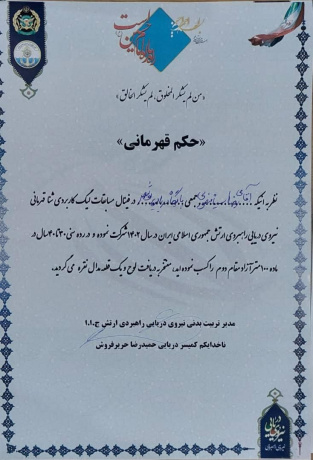 «من لم یشکر المخلوق، لم یشکر الخالق»
«حکم قهرمانی»
نظر به اینکه آقای رضا جمعی در فینال مسابقات لیگ کاربردی شنا قهرمانی
نیروی دریایی راهبردی ارتش جمهوری اسلامی ایران در سال ۱۴۰۲ شرکت نموده و در رده سنی ۳۰ تا ۴۰ سال در
ماده ۱۰۰ متر آزاد مقام دوم را کسب نموده اید، مفتخر به دریافت لوح و یک قطعه مدال نقره می گردید.
مدیر تربیت بدنی نیروی دریایی راهبردی ارتش ج.ا.ا
ناخدایکم کمیسر دریایی حمیدرضا حریرفروش